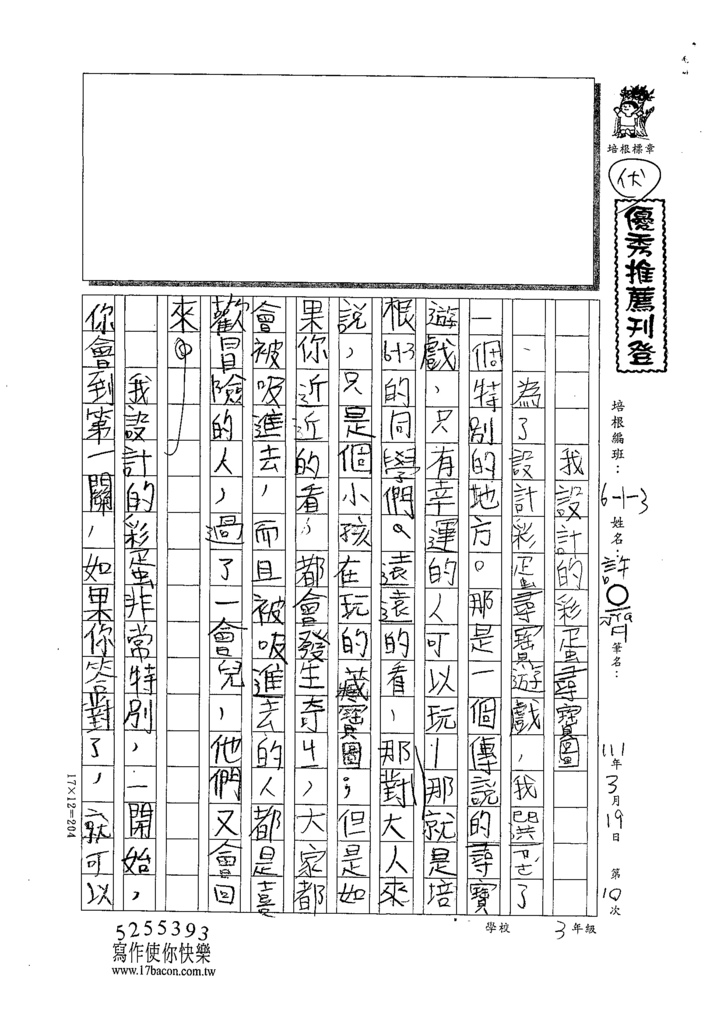 培根標章
伏
優秀推薦刊登
培根編班：6-1-3 姓名：許○ 筆名： 111年3月19日 第10次
3年級
學校
我設計的彩蛋尋寶圖
為了設計彩蛋尋寶遊戲，我選了
一個特別的地方。那是一個傳說的尋寶
遊戲，只有幸運的人可以玩—那就是培
根6-1-3的同學們。遠遠的看，那對大人來
說，只是個小孩在玩的藏寶圖；但是如
果你近近的看，都會發生奇，大家都
會被吸進去，而且被吸進去的人都是喜
歡冒險的人，過了一會兒，他們又會回
來。
我設計的彩蛋非常特別，一開始，
你會到第一關，如果你答對了，就可以
17×12=204
5255393
寫作使你快樂
www.17bacon.com.tw